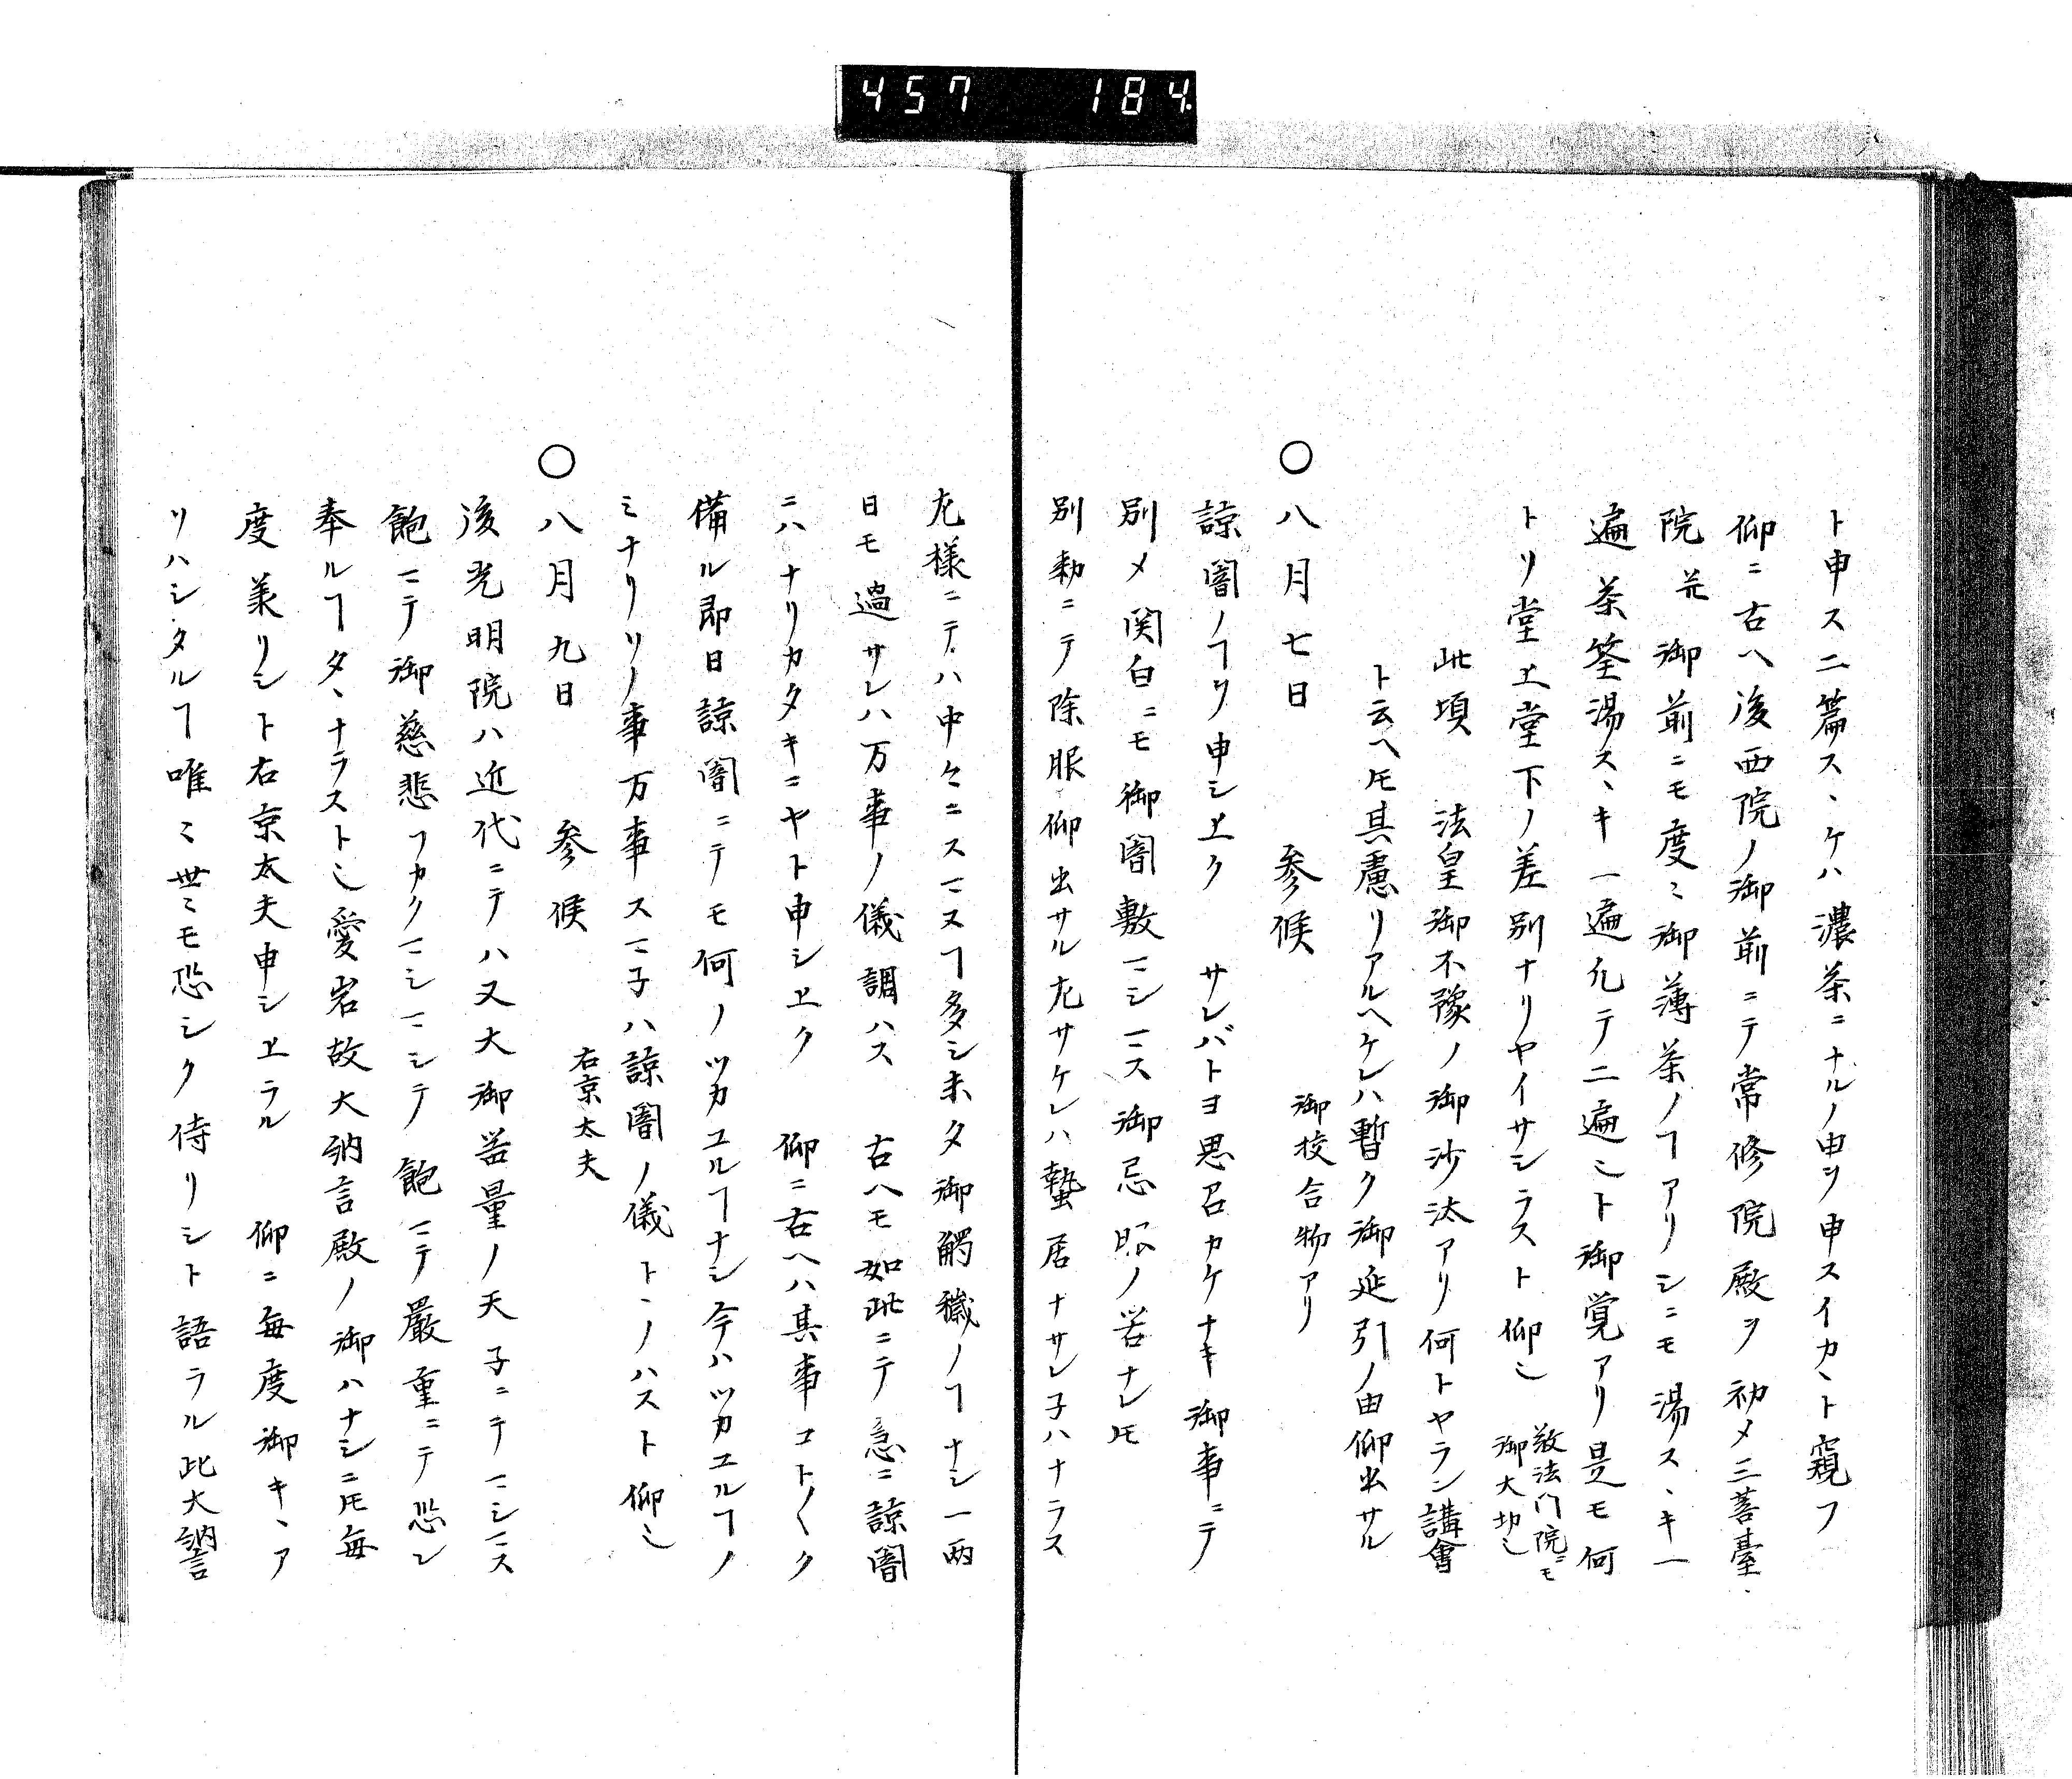 457 184
ト申ス二篇スヽケハ濃茶ニナルノ申ヲ申スイカヽト窺フ
仰ニ古ヘ後西院ノ御前ニテ常修院殿ヲ初メ三菩薹
院并御前ニモ度〻御薄茶ノヿアリシニモ湯スヽキ一
遍茶筌湯スヽキ一遍凡テ二遍也ト御覚アリ是モ何
トソ堂上堂下ノ差別ナリヤイサシラスト仰也
敬法門院ニモ
御大切也
此頃 法皇御不豫ノ御沙汰アリ何トヤラン講會
ト云ヘ𪜈其慮リアルヘケレハ暫ク御延引ノ由仰出サル
〇八月七日 參候 御挍合物アリ
諒闇ノヿヲ申シ上ク サレバトヨ思召カケナキ御事ニテ
別メ関白ニモ御闇敷マシマス御忌服ノ筈ナレ𪜈
別勅ニテ除服仰出サル左サケレハ蟄居ナサレ子ハナラス
左様ニテハ中々ニスマヌヿ多シ未タ御觸穢ノヿナシ一両
日モ過サレハ万事ノ儀調ハス 古ヘモ如此ニテ急ニ諒闇
ニハナリカタキニヤト申シ上ク 仰ニ古ヘハ其事コト〱ク
備ル即日諒闇ニテモ何ノツカユルヿナシ今ハツカユルヿノ
ミナリソノ事万事スマ子ハ諒闇ノ儀トヽノハスト仰也
〇八月九日 參候 右京太夫
後光明院ハ近代ニテハ又大御器量ノ天子ニテマシマス
飽マテ御慈悲フカクマシマシテ飽マテ嚴重ニテ恐レ
奉ルヿタヽナラスト也愛宕故大納言殿ノ御ハナシニ𪜈毎
度承リシト右京太夫申シ上ラル 仰ニ毎度御キヽア
リハシタルヿ唯〻世ニモ恐シク侍リシト語ラル此大納言